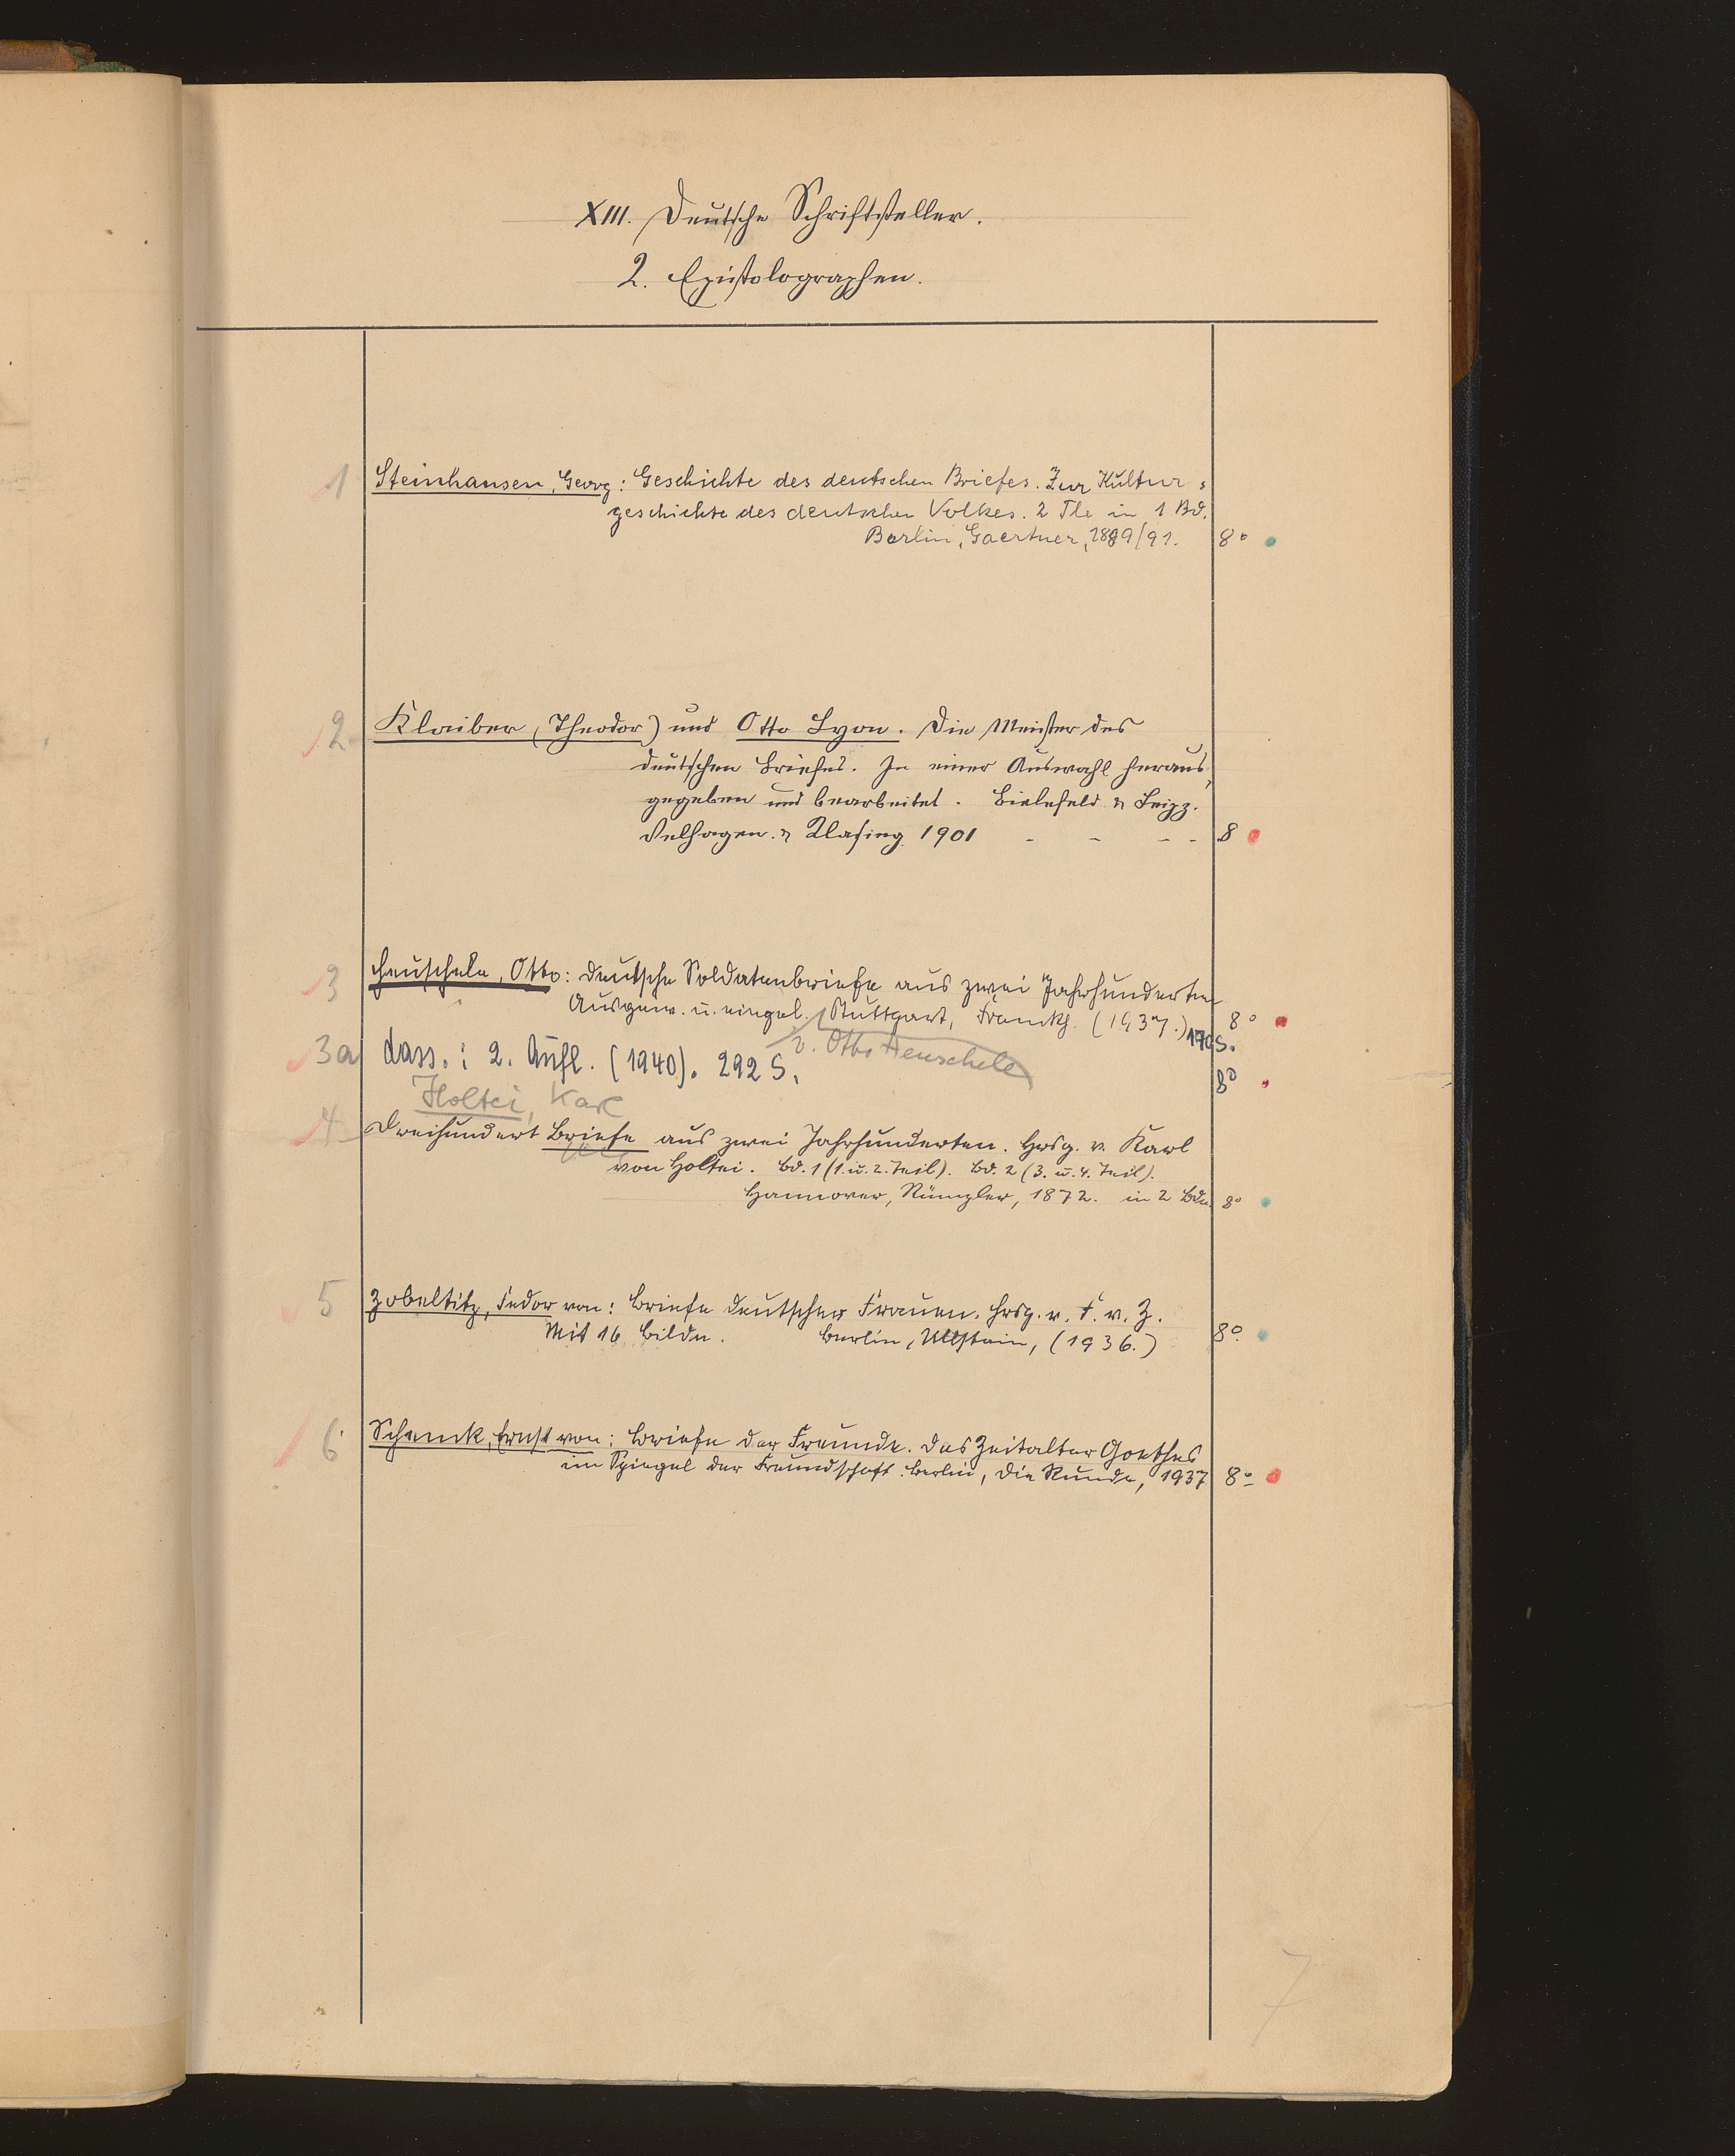 XIII. Deutsche Schriftsteller.
2. Epistolographen.
1 Steinhausen, Georg: Geschichte des deutschen Briefes. Zur Kultur=
geschichte des deutschen Volkes. 2 Tle in 1 Bd.
Berlin, Gaertner, 1889/91. 8°
2 Klaiber (Theodor) und Otto Lyon. Die Meister des
deutschen Briefes. In einer Auswahl heraus=
gegeben und bearbeitet. Bielefeld & Leipz.
Velhagen & Klasing 1901 - - - - 8
3 Heuschele, Otto: Deutsche Soldatenbriefe aus zwei Jahrhunderten
Ausgew. u. eingel. Stuttgart, Franckh. (1937.) 170 S. 8°
v. Otto Heuschele
3a dass.: 2. Aufl. (1940). 292 S. 8°
Holtei, Karl
4 Dreihundert Briefe aus zwei Jahrhunderten. Hrsg. v. Karl
von Holtei. Bd. 1 (1. u. 2. Teil). Bd. 2 (3. u. 4. Teil).
Hannover, Rümpler, 1872. in 2 Bdn. 8°
5 Zobeltitz, Fedor von: Briefe deutscher Frauen. Hrsg. v. F. v. Z.
Mit 16 Bildn. Berlin, Ullstein, (1936.) 8°
6 Schenk, Ernst von: Briefe der Freunde. Das Zeitalter Goethes
im Spiegel der Freundschaft. Berlin, Die Runde, 1937 8°
7